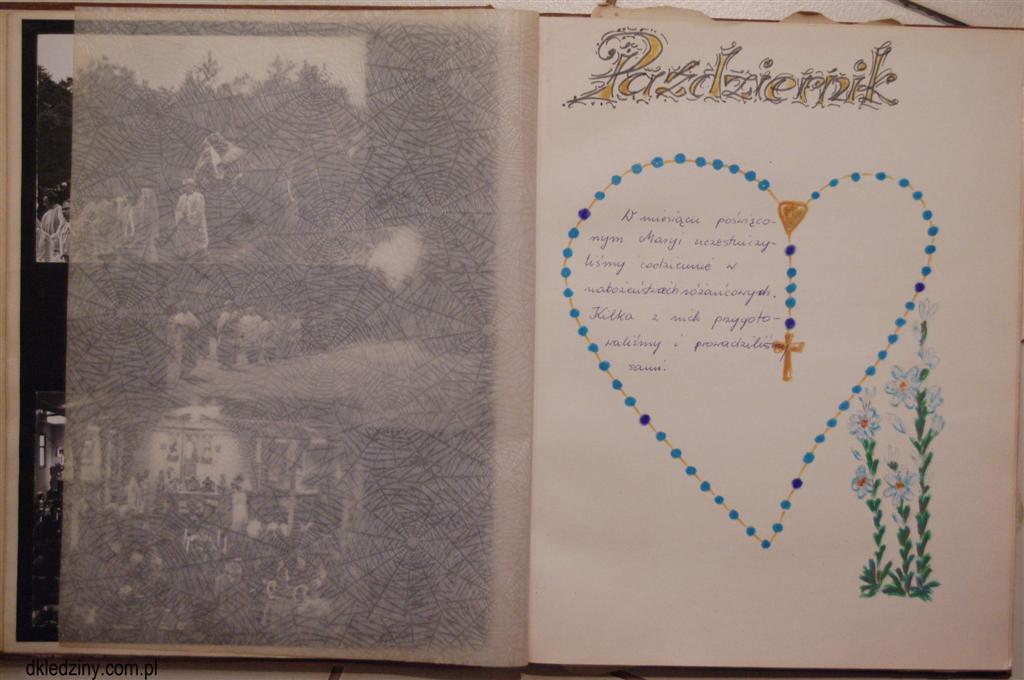 Październik
W miesiącu poświęco-
nym Maryi uczestniczy-
liśmy codziennie w
nabożeństwach różańcowych.
Kilka z nich przygoto-
waliśmy i prowadziliśmy
sami.
dkledziny.com.pl